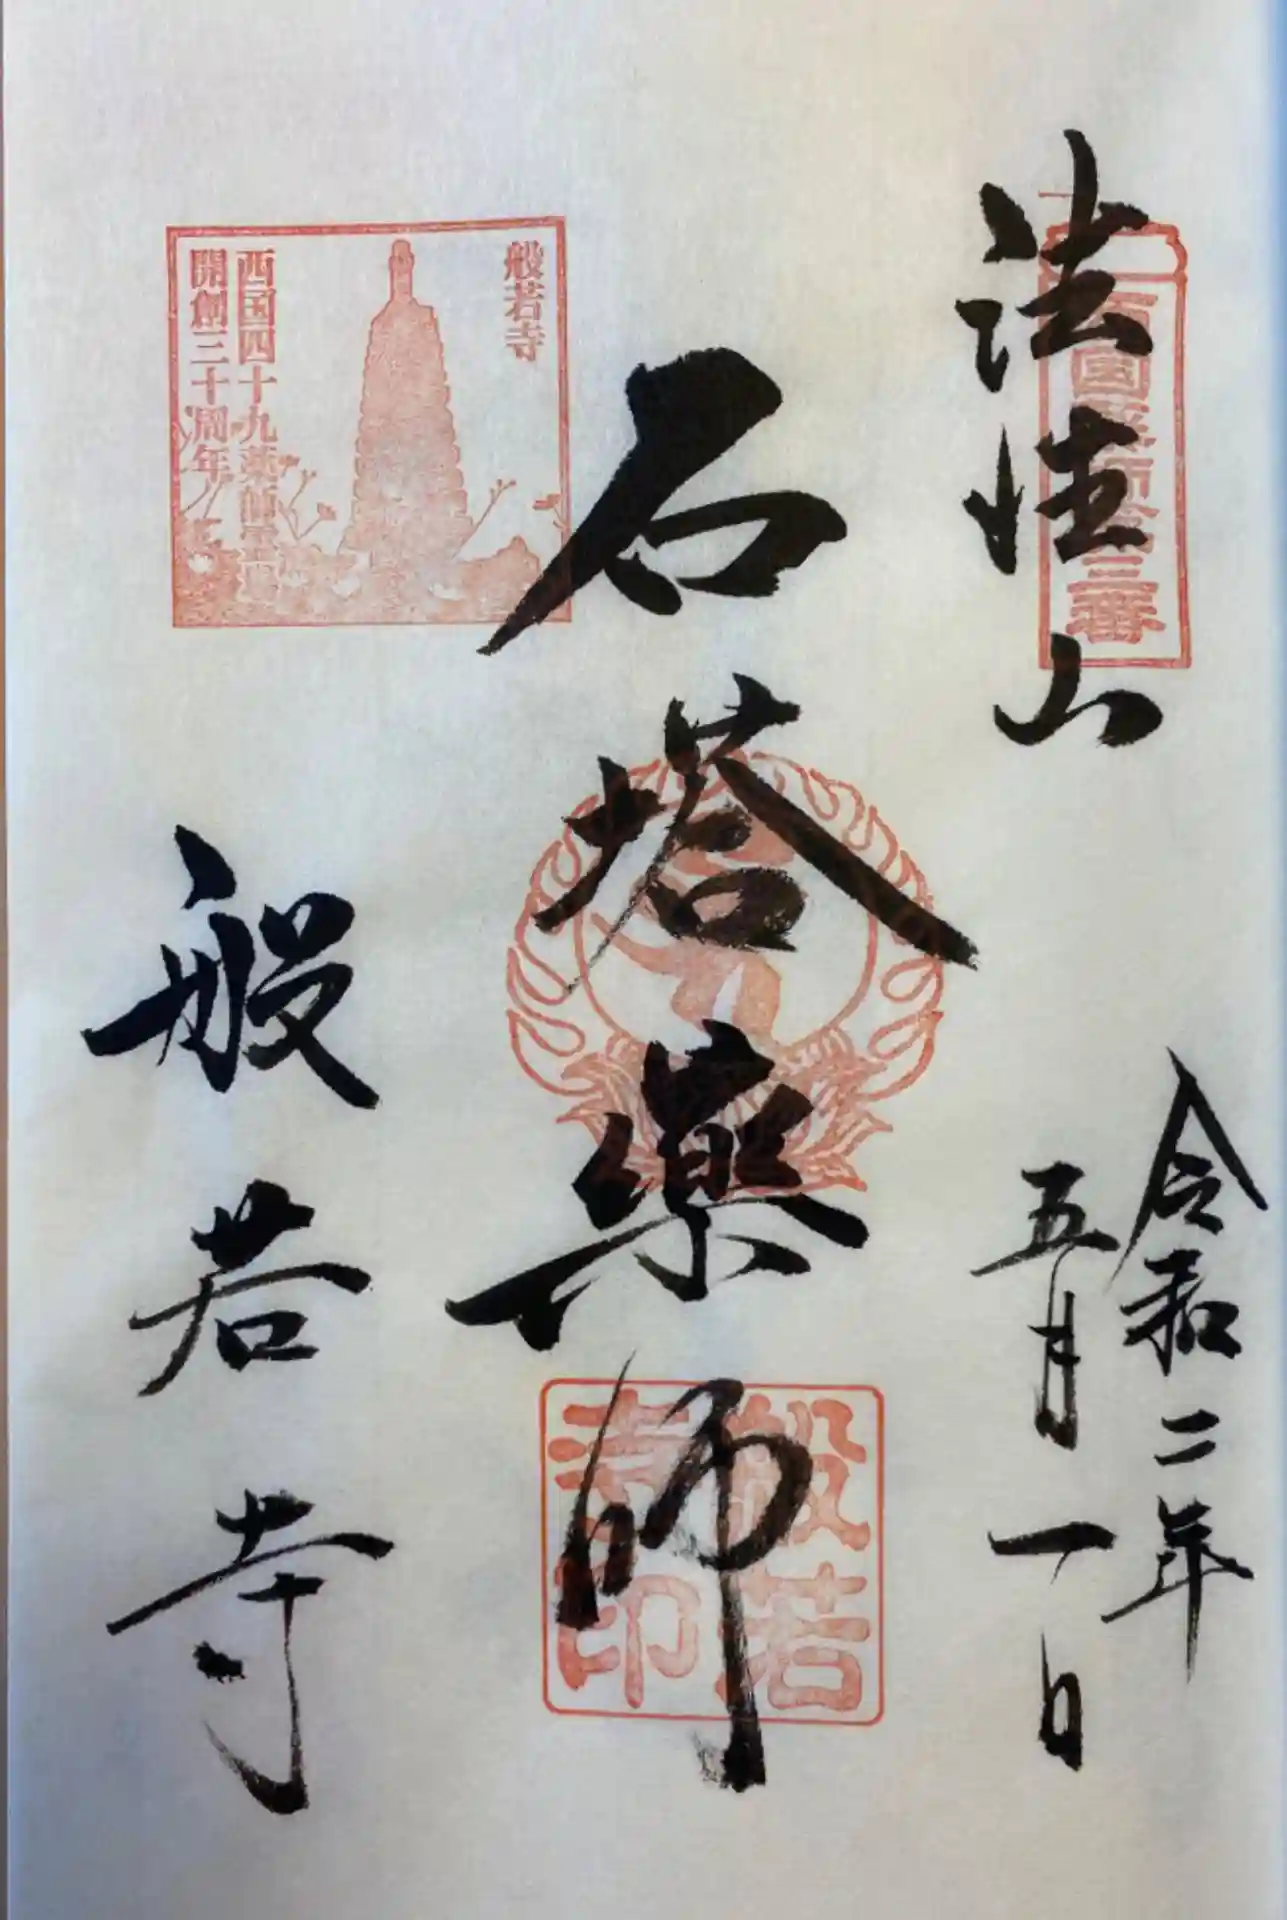 法性山
西国薬師第三番
令和二年
五月一日
石塔薬師
般若
寺印
般若寺
西国四十九薬師霊場
開創三十周年
般若寺